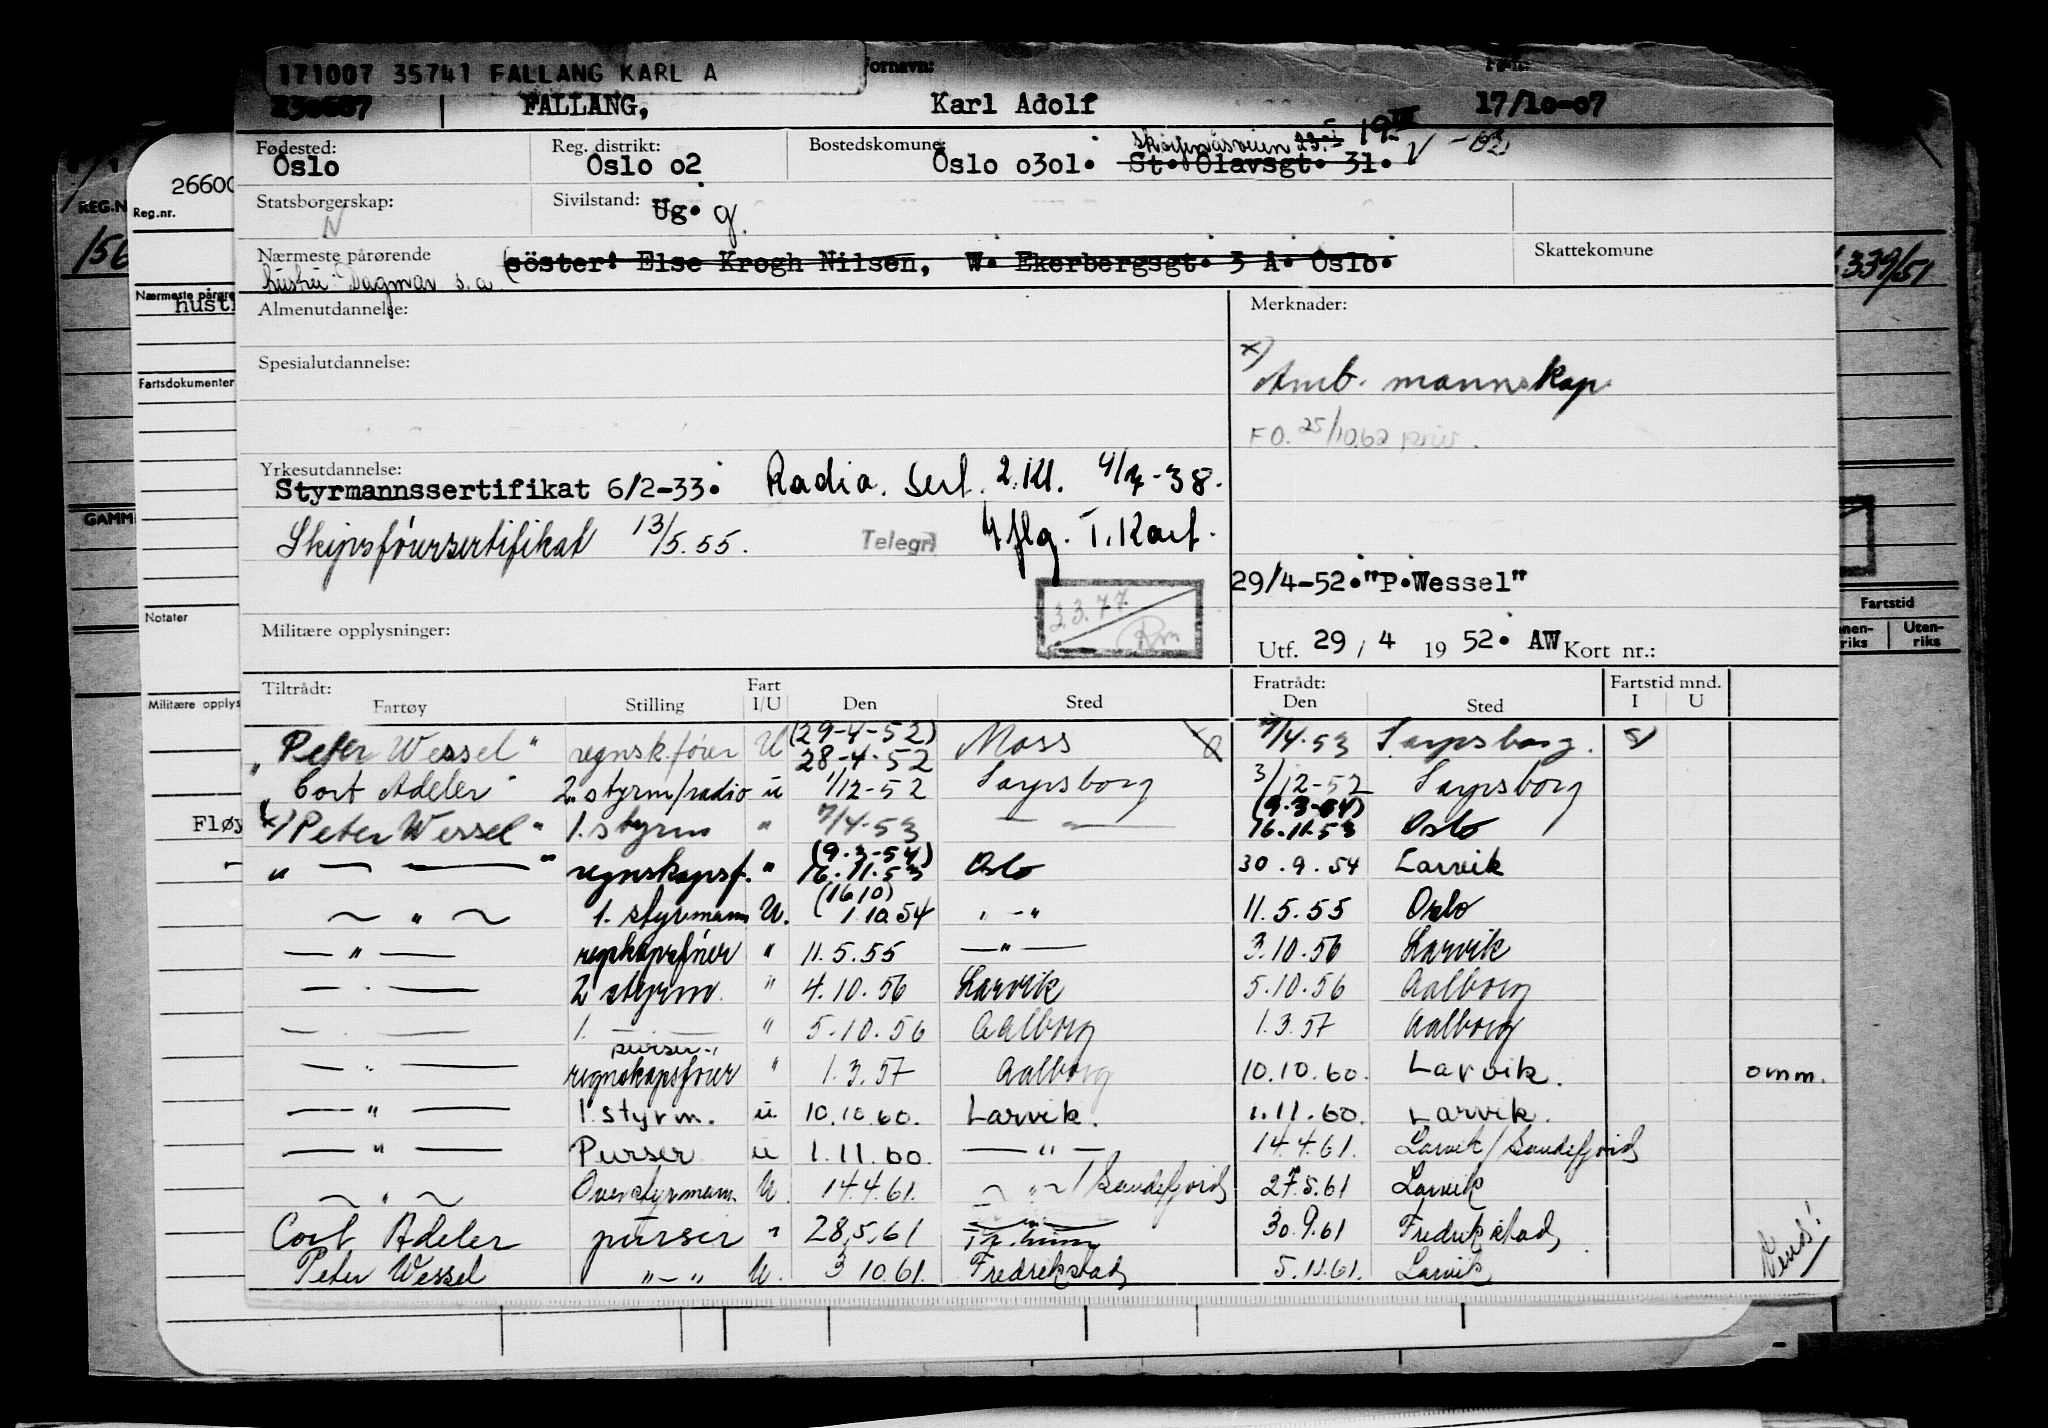 171007 35741 FALLANG KARL A
Fornavn:
FALLANG, Karl Adolf 17/10-07
Fødested: Reg. distrikt: Bostedskommune:
Oslo Oslo 02 Oslo 0301. St. Olavsgt. 31.
Statsborgerskap: N Sivilstand: Ug. g.
Nærmeste pårørende söster: Else Krogh Nilsen, W. Ekerbergsgt. 3 A. Oslo. Skattekomune
hustru: Dagmar s.a.
Almenutdannelse: Merknader:
x) Amb. mannskap
Spesialutdannelse:
F.O. 25/10.62
Yrkesutdannelse:
Styrmannssertifikat 6/2-33. Radio. Sert. 2. Kl.
Skipsførersertifikat 13/5.55. Telegr
29/4-52. "P.Wessel"
3.3.77
Militære opplysninger:
Utf. 29 / 4 19 52. AW Kort nr.:
Tiltrådt: Fart Fratrådt: Fartstid mnd.
Fartøy Stilling I/U Den Sted Den Sted I U
"Peter Wessel" regnsk.fører U (29-4-52) 28-4-52 Moss 7/4-53 Sarpsborg.
"Cort Adeler" 2. styrm/radio u 1/12-52 Sarpsborg 3/12-52 Sarpsborg
x) "Peter Wessel" 1. styrm " 7/4-53 — " — (9.3-54) 16.11.53 Oslo
" — — " regnskapsf. " (9.3-54) 16.11.53 Oslo 30.9.54 Larvik
~ " ~ 1. styrmann U. (1610) 1.10.54 " - " 11.5.55 Oslo
— " — regnskapsfører " 11.5.55 — " — 3.10.56 Larvik
— " — 2 styrm. " 4.10.56 Larvik 5.10.56 Aalborg
— " — 1. — " 5.10.56 Aalborg 1.3.57 Aalborg
purser
— " — regnskapsfører " 1.3.57 Aalborg 10.10.60. Larvik. omm.
— " — 1. styrm. u 10.10.60. Larvik. 1.11.60. Larvik.
— " — Purser u 1.11.60. — " — 14.4.61. Larvik/Sandefjord
~ " ~ Overstyrmann. U. 14.4.61. ~ " ~/Sandefjord 27.5.61 Larvik
Cort Adeler purser " 28.5.61 30.9.61 Fredrikstad
Peter Wessel " — " U. 3 10.61. Fredrikstad 5.11.61. Larvik
Vend!
26600
Reg.nr.
REG.N
156
Nærmeste pårøre
hust
Fartsdokumenter
GAMM
Notater
Militære opplys
Fløy
339/51
Fartstid
nen-riks Uten-riks